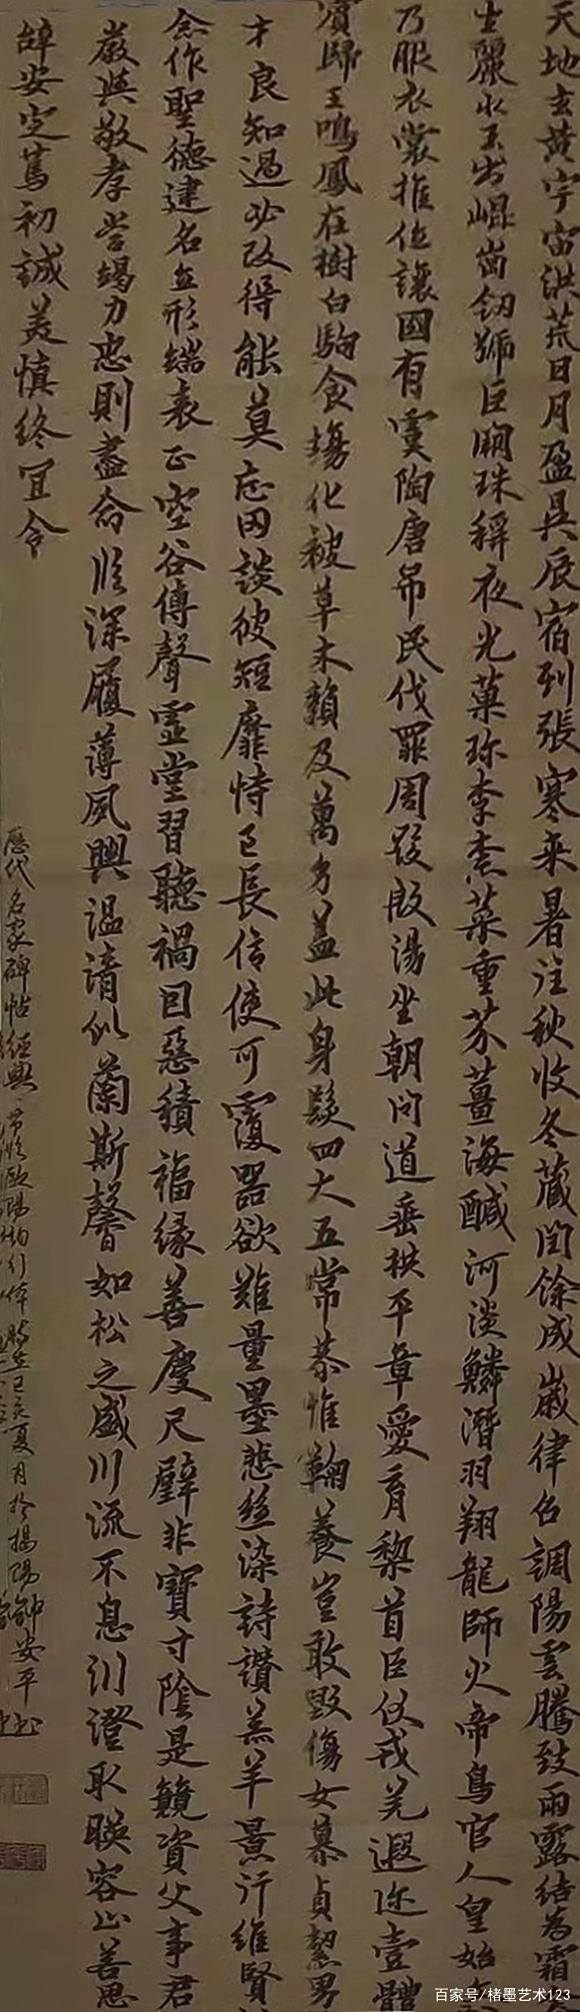 天地玄黄宇宙洪荒日月盈昃辰宿列張寒来暑往秋收冬藏閏餘成歲律吕調陽雲騰致雨露結為霜
生麗水玉出崐崗劔號巨闕珠稱夜光菓珍李柰菜重芥薑海醎河淡鱗潛羽翔龍師火帝鳥官人皇始
乃服衣裳推位讓國有虞陶唐吊民伐罪周發殷湯坐朝问道垂拱平章愛育黎首臣伏戎羌遐迩壹體
賓歸王鳴鳳在樹白駒食場化被草木賴及萬方盖此身髮四大五常恭惟鞠養豈敢毀傷女慕貞絜男
才良知過必改得能莫忘罔談彼短靡恃己長信使可覆器欲難量墨悲絲染詩讚羔羊景行維賢
念作聖德建名立形端表正空谷傳聲虛堂習聽禍因惡積福緣善慶尺璧非寶寸陰是競資父事君
嚴與敬孝當竭力忠則盡命臨深履薄夙興温清似蘭斯馨如松之盛川流不息渊澄取暎容止善思
辞安定篤初誠美慎终宜令
歷代名家碑帖經典 節臨歐陽询行体 時在己亥夏月於揭陽 鍾安平书
百家号/楮墨艺术123